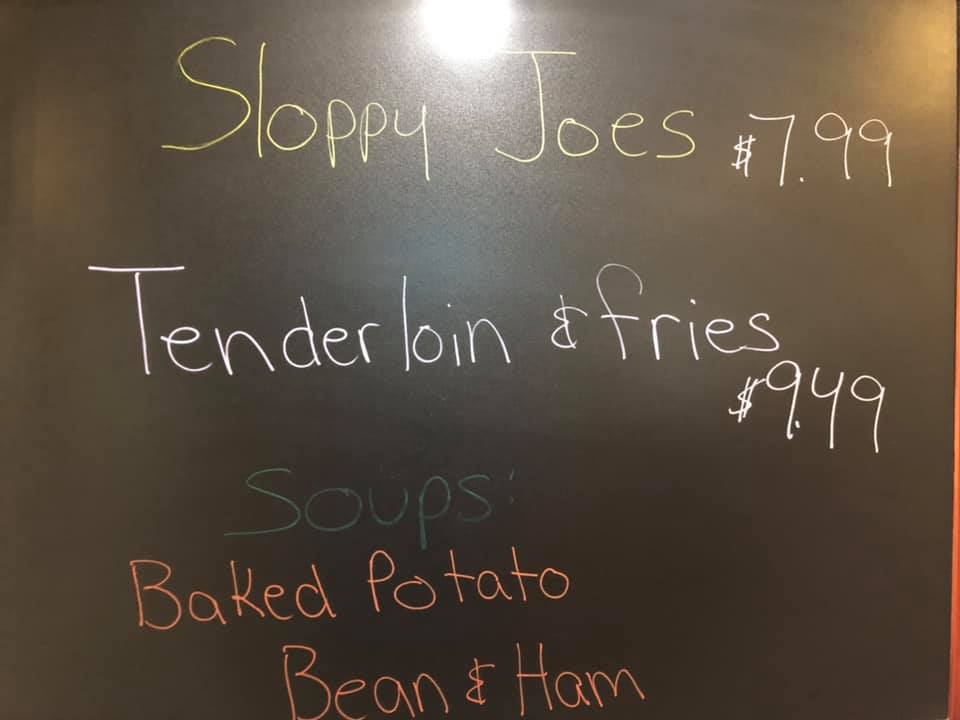 Sloppy Joes $7.99
Tenderloin & fries
$9.49
Soups:
Baked Potato
Bean & Ham